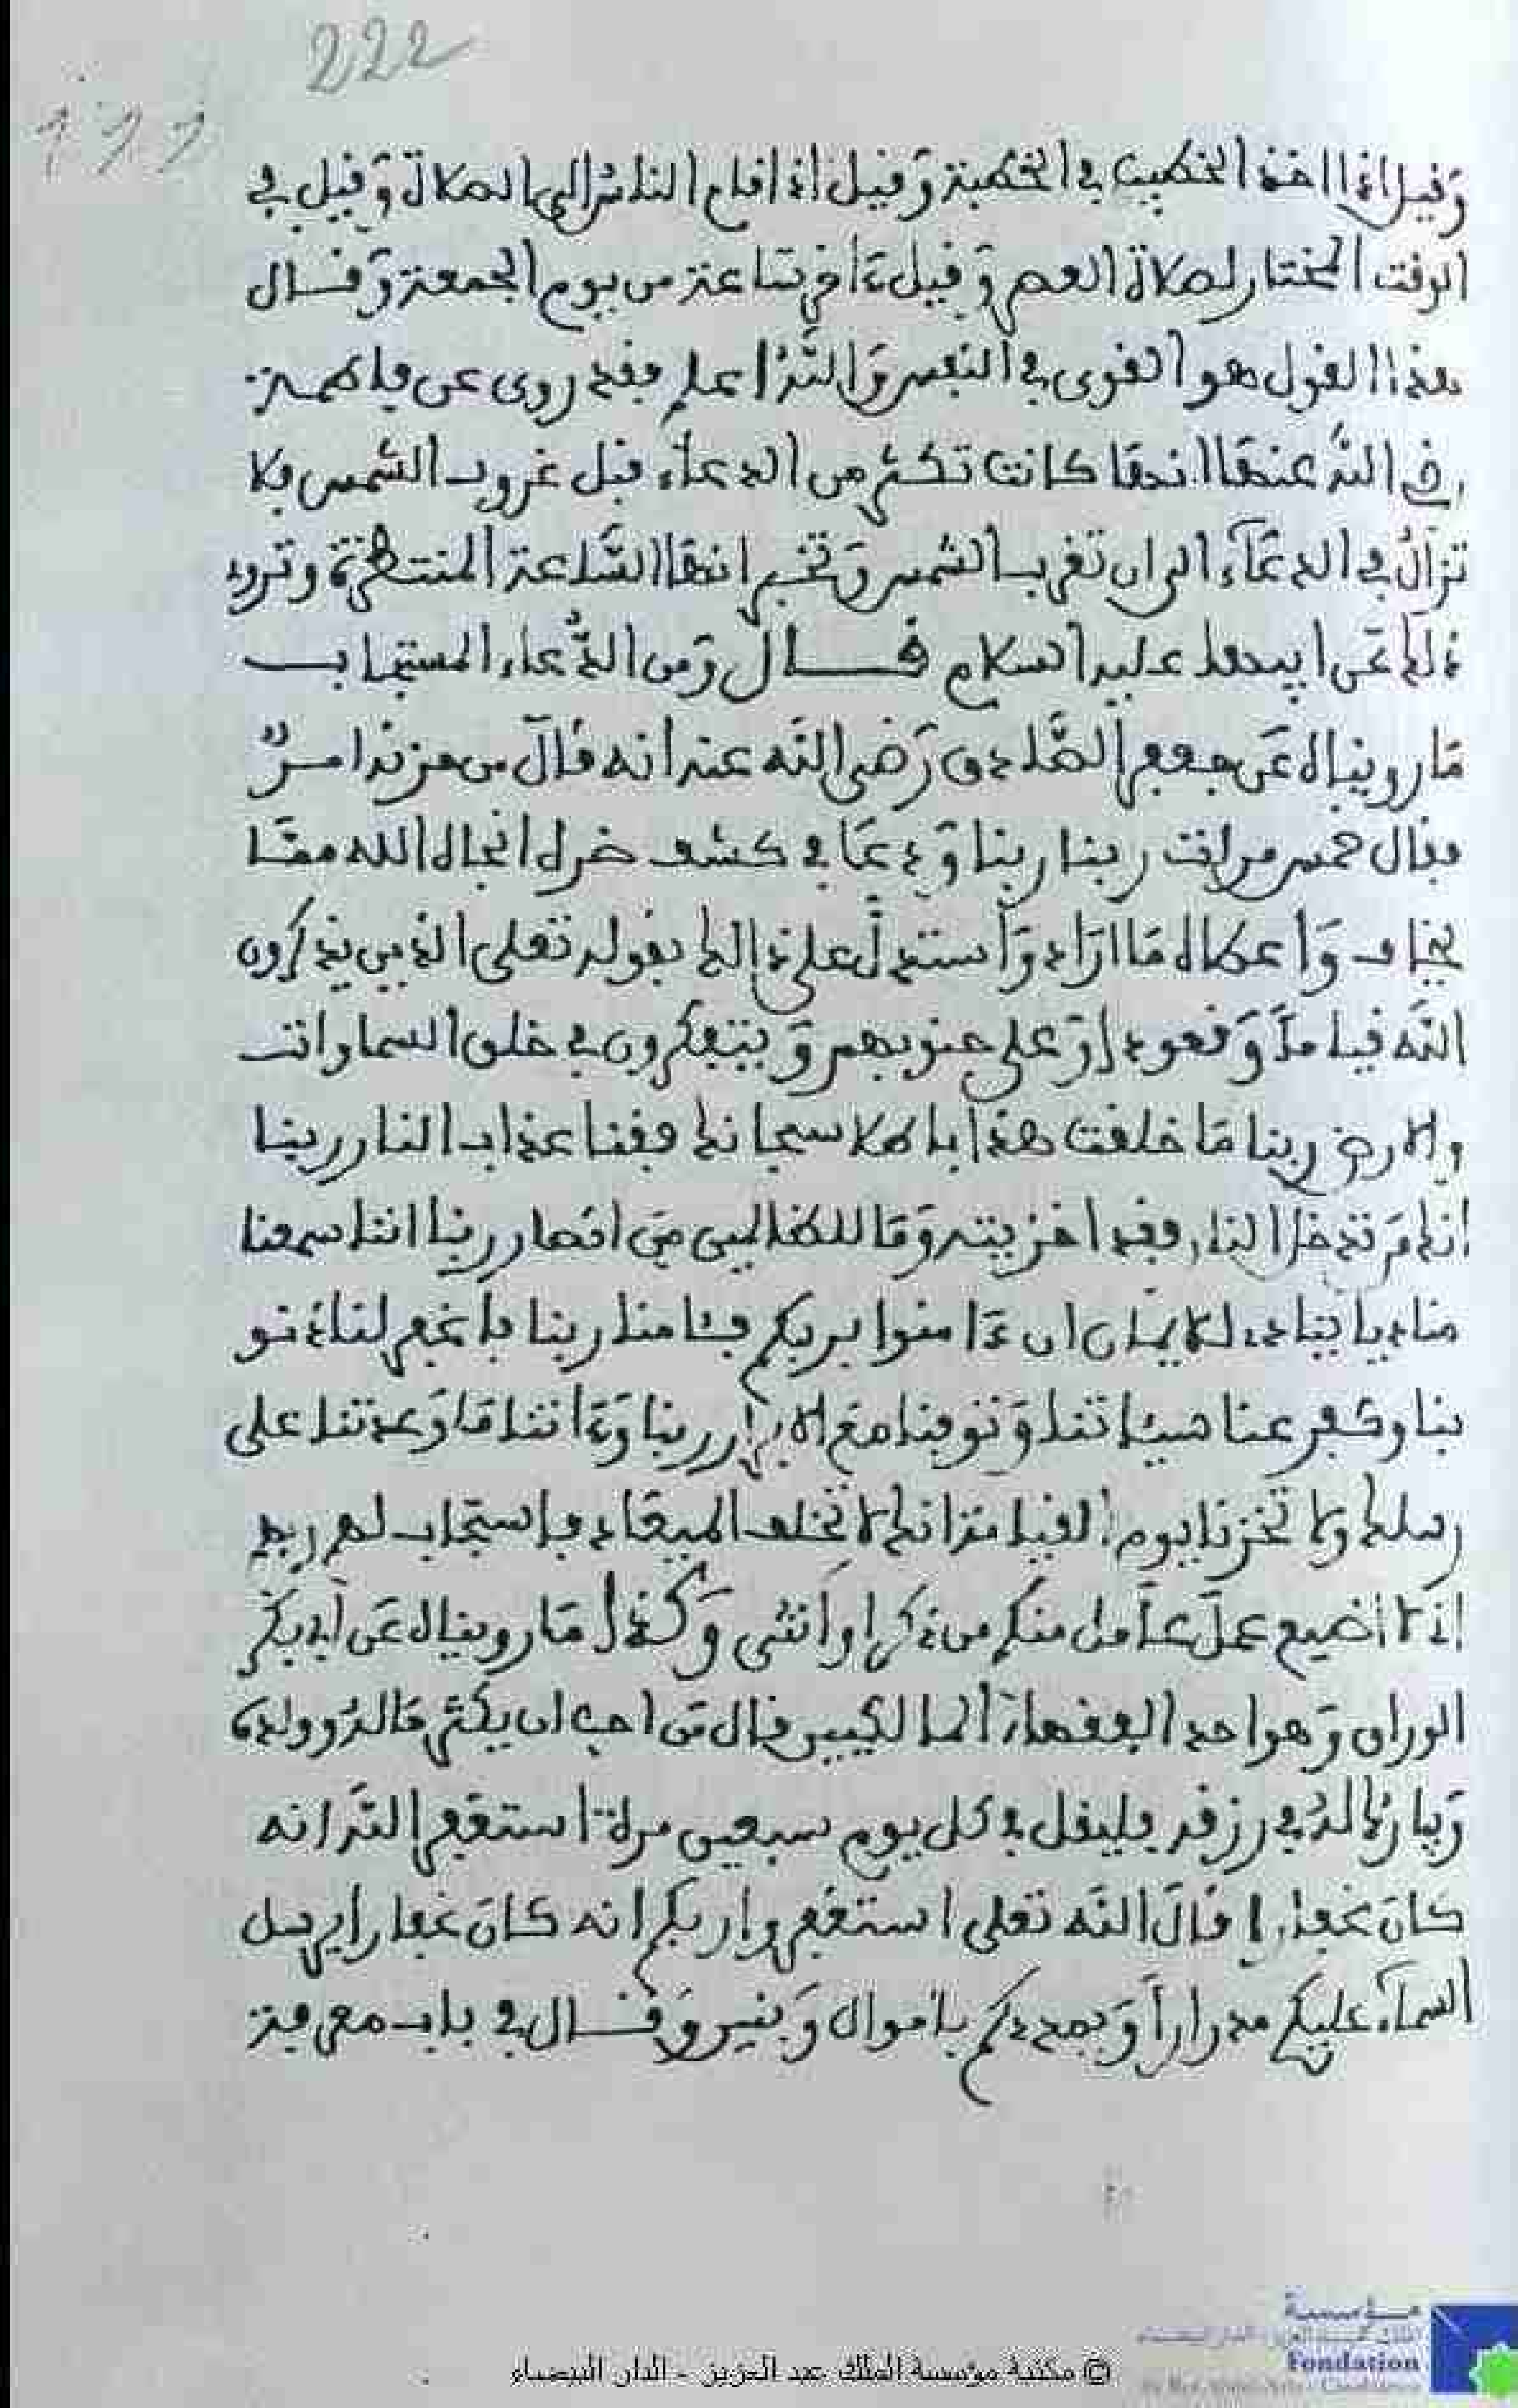 222
وقيل اذا اخذ الخطيب في الخطبة وقيل اذا اقام الناس الى الصلاة وقيل في
الوقت المختار لصلاة العصر وقيل ءاخر ساعة من يوم الجمعة وقال
هذا القول هو القوى في النفس والله اعلم فقد روى عن فاطمة
رضي الله عنها انها كانت تكثر من الدعاء قبل غروب الشمس فلا
تزال في الدعاء الى ان تغرب الشمس وتخبر انها الساعة المنتظرة وتروى
ذلك عن ابيها عليه السلام قال ومن الدعاء المستجاب
ما رويناه عن جعفر الصادق رضى الله عنه انه قال من حزنه امر
فقال خمس مرات ربنا ربنا ودعا في كشف ضره انجاه الله مما
يخاف واعطاه ما اراد واستدل على ذالك بقوله تعلى الذين يذكرون
الله قياما وقعودا وعلى جنوبهم ويتفكرون في خلق السماوات
والارض ربنا ما خلقت هذا باطلا سبحانك فقنا عذاب النار ربنا
انك من تدخل النار فقد اخزيته وما للظالمين من انصار ربنا اننا سمعنا
مناديا ينادى للايمان ان ءامنوا بربكم فـٔامنا ربنا فاغفر لنا ذنو
بنا وكفر عنا سيـٔاتنا وتوفنا مع الابرار ربنا وءاتنا ما وعدتنا على
رسلك ولا تخزنا يوم القيامة انك لا تخلف الميعاد فاستجاب لهم ربهم
انى لا اضيع عمل عامل منكم من ذكر او انثى وكذا ما رويناه عن ابى بكر
الوراق وهو احد الفقهاء المالكيين قال من احب ان يكثر ماله وولده
ويبارك له في رزقه فليقل في كل يوم سبعين مرة استغفر الله انه
كان غفارا قال الله تعلى استغفروا ربكم انه كان غفارا يرسل
السماء عليكم مدرارا ويمددكم باموال وبنين وقال في باب معرفة
© مكتبة مؤسسة الملك عبد العزيز - الدار البيضاء
مؤسسة
Fondation